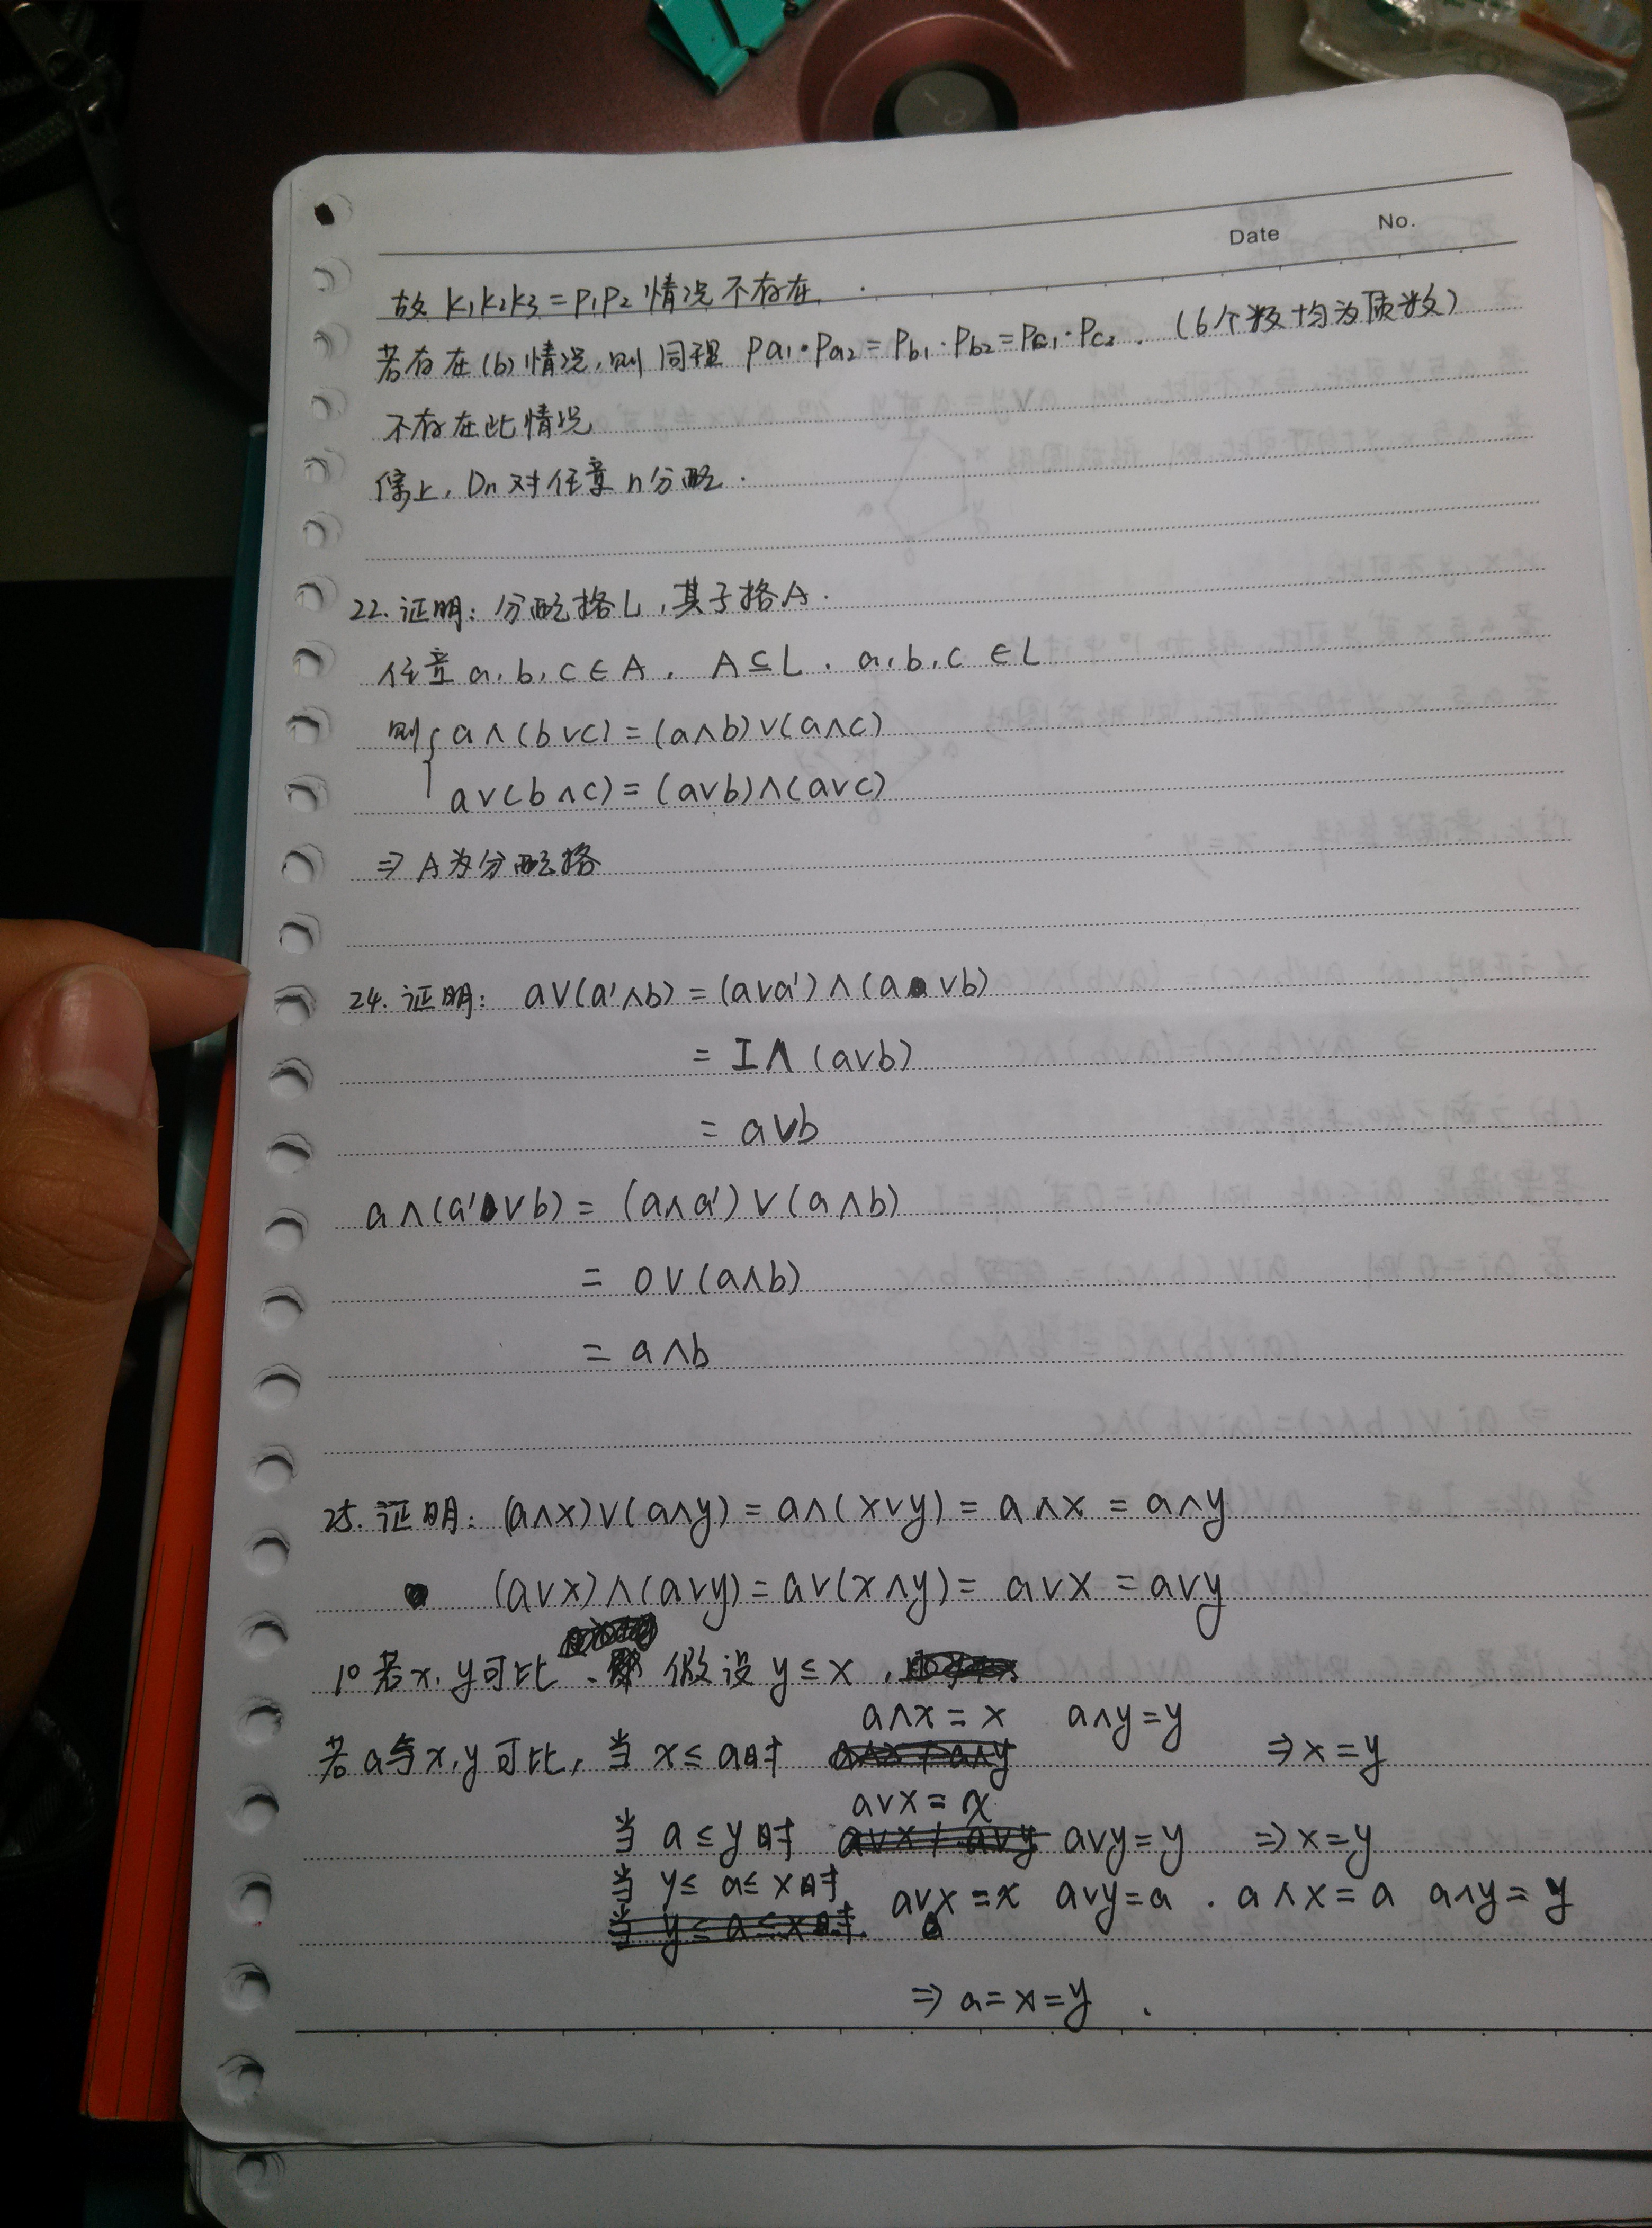 Date No.
故 k₁k₂k₃=p₁p₂情况不存在.
若存在(b)情况,则同理 Pa₁·Pa₂=Pb₁·Pb₂=Pc₁·Pc₂.(6个数均为质数)
不存在此情况
综上,Dn对任意n分配.
22.证明:分配格L,其子格A.
任意a,b,c∈A, A⊆L. a,b,c∈L
则{a∧(b∨c)=(a∧b)∨(a∧c)
a∨(b∧c)=(a∨b)∧(a∨c)
⇒A为分配格
24.证明: a∨(a'∧b)=(a∨a')∧(a∨b)
=I∧(a∨b)
=a∨b
a∧(a'∨b)=(a∧a')∨(a∧b)
=0∨(a∧b)
=a∧b
25.证明:(a∧x)∨(a∧y)=a∧(x∨y)=a∧x=a∧y
(a∨x)∧(a∨y)=a∨(x∧y)=a∨x=a∨y
1°若x,y可比、假设y≤x,
若a与x,y可比,当x≤a时 a∧x=x a∧y=y ⇒x=y
当a≤y时 a∨x=x a∨y=y ⇒x=y
当y≤a≤x时 a∨x=x a∨y=a. a∧x=a a∧y=y
⇒a=x=y.